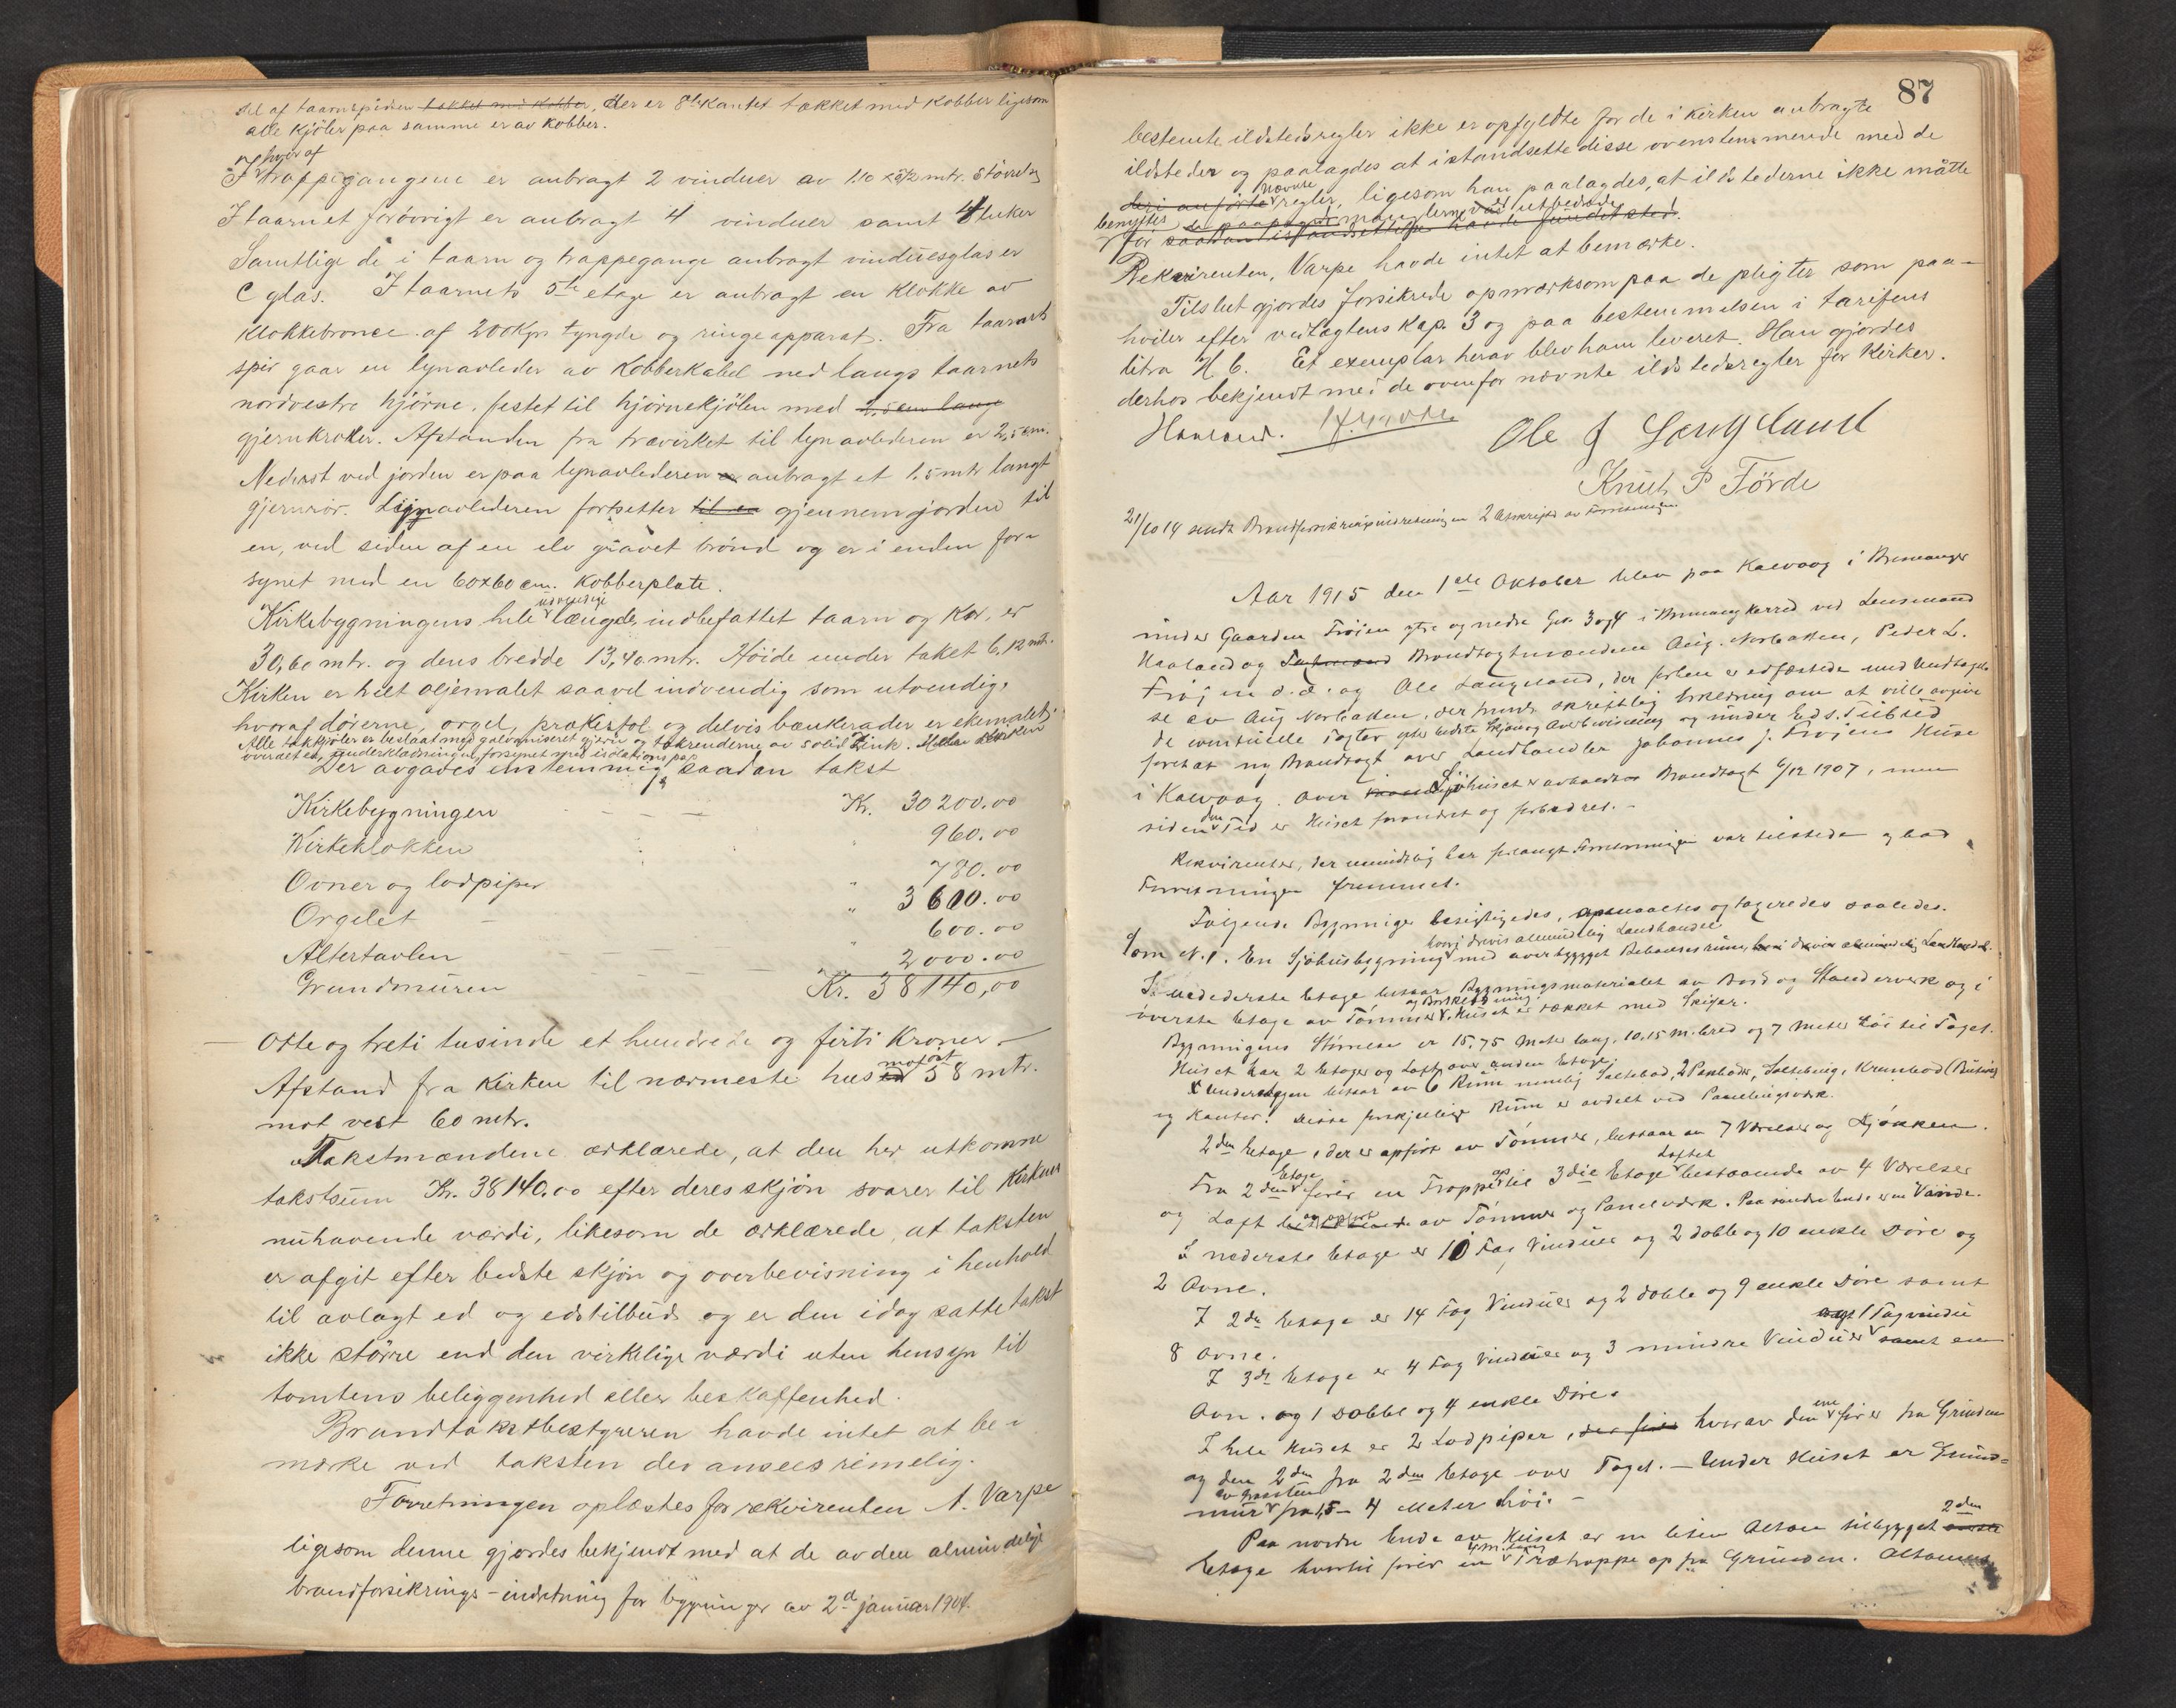 del af taarnspiden takket med kobber, der er 8te kantet takket med kobber ligesom
alle kjöler paa samme er av kobber.
hver af
I trappegangene er anbragt 2 vinduer av 1.10 x 0,72 mtr. Störrelse
I taarnet forövrigt er anbragt 4 vinduer samt 4 luker
Samtlige de i taarn og trappegange anbragt vinduesglas er
C glas. I taarnets 5te etage er anbragt en Klokke av
Klokkebronce af 200 Kgr. tyngde og ringeapparat. Fra taarnets
spir gaar en lynavleder av Kobberkabel ned langs taarnets
nordvestre hjörne, festet til hjörnekjölen med 2,5 cm lange
gjernkroker. Afstanden fra trævirket til lynavlederen er 2,5 cm.
Nederst ved jorden er paa lynavlederen er anbragt et 1.5 mtr langt
gjernrör. Lynavlederen fortsetter til en gjennem jorden til
en, ved siden af en elv gravet brönd og er i enden for-
synet med en 60x60 cm. Kobberplate.
udvendige
Kirkebygningens hele længde, indbefattet taarn og Kor, er
30,60 mtr. og dens bredde 13,40 mtr. Höide under taket 6,12 mtr.
Kirken er helt oljemalet saavel indvendig som utvendig,
hvoraf dörerne, orgel, prækestol og delvis bænkerader er ekemalet.
Alle takkjöler er beslaat med galvaniseret gjern og takrenderne av solid Zink.
overalt er underklædningen forsynet med isolationspap
Der avgaves enstemmig saadan takst
Kirkebygningen Kr. 30200.00
Kirkeklokken 960.00
Ovner og lodpiper " 780.00
Orgelet " 3600.00
Altertavlen " 600.00
Grundmuren 2000.00
Kr. 38140,00
Otte og treti tusinde et hundrede og firti Kroner.
mot öst
Afstand fra Kirken til nærmeste hus er 58 mtr.
mot vest 60 mtr.
Takstmændene erklærede, at den her utkomne
takstsum Kr. 38140.00 efter deres skjön svarer til Kirkens
nuhavende værdi, likesom de erklærede, at taksten
er afgit efter bedste skjön og overbevisning i henhold
til avlagt ed og edstilbud og er den idag satte takst
ikke större end den virkelige værdi uten hensyn til
tomtens beliggenhed eller beskaffenhed.
Brandtakstbestyreren havde intet at be-
merke ved taksten der ansees rimelig.
Forretningen oplæstes for rekvirenten A. Varpe
ligesom denne gjordes bekjendt med at de av den almindelige
brandforsikrings-indretning for bygninger av 2d januar 1904
87
bestemte ildstedsregler ikke er opfyldte for de i kirken anbragte
ildsteder og paalagdes at istandsette disse overenstemmende med de
nævnte
deri anförte regler, ligesom han paalagdes, at ildstederne ikke måtte
benyttes de paapegte manglerne var utbedrede
för saadan istandsettelse havde fundet sted.
Rekvirenten, Varpe havde intet at bemærke.
Tilslut gjordes forsikrede opmærksom paa de pligter som paa-
hviler efter vedtægtens Kap. 3 og paa bestemmelsen i tarifens
litra H. 6. Et exemplar herav blev ham leveret. Han gjordes
derhos bekjendt med de ovenfor nævnte ildstedsregler för Kirker.
Haaland. Ole J Langeland
Knut P Förde
21/10 14 sendt Brandforsikringsindretningen 2 Afskrifter av Forretningen.
Aar 1915 den 1ste Oktober blev paa Kalvaag i Bremanger
under Gaarden Fröien ytre og nedre Gno 3 og 4 i Bremanger herred ved Lensmand
Haaland og Takstmænd Brandtagtmændene Aug. Norbakken, Peder L.
Fröien d.æ. og Ole Langeland, der forhen er edfæstede med Undtagel-
se av Aug Norbakken, der skriftlig Erklæring om at ville avgive
de eventuelle Tagter efter bedste Skjön og Overbevisning og under Eds Tilbud
foretat ny Brandtagt over Landhandler Johannes J. Fröiens Huse
i Kalvaag. Over Sjöhuset er avholdt Brandtagt 6/12 1907, men
den
siden Tid er Huset forandret og forbedret.-
Rekvirenten, der mundtlig har forlangt Forretningen var tilstede og bad
Forretningen fremmet.
Fölgende Bygninger besigtigedes, opmaaltes og tageredes saaledes.
hvori drives almindelig Landhandel
Som No. 1. En Sjöhusbygning med overbygget Beboelsesrum, hvori drives almindelig Landhandel.
I nedederste Etage bestaar Bygningsmaterialet av Bord og Standerverk og i
og Bordklædning
överste Etage av Tömmer. Huset er tækket med Skifer.
Bygningens Störrelse er 15,75 Meter lang, 10,15 M. bred og 7 Meter höi til Taget.
Huset har 2 Etager og Loft over anden Etage.
Underetagen bestaar av 6 Rum nemlig Saltebod, 2 Pakboder, Saltebing, Krambod (Butik)
og Kontor. Disse forskjellige Rum er avdelt ved Panelingsverk.
2den Etage, der er opfört av Tömmer, bestaar av 7 Værelser og Kjökken.
Etage op Loftet
Fra 2den förer en Trappe til 3die Etage bestaaende av 4 Værelser
og opfört
og Loft av Tömmer og Panelværk. Paa söndre Ende er en Vinde.
I nederste Etage er 10 Fag Vinduer og 2 dobble og 10 enkle Döre og
2 Ovne.
I 2den Etage er 14 Fag Vinduer og 2 doble og 9 enkle Döre samt
8 Ovne. 1 Tagvindu
I 3die Etage er 4 Fag Vinduer og 3 mindre Vinduer samt en
Ovn. og 1 Dobbl og 4 enkle Döre.
ene
I hele Huset er 2 Lodpiper, der förer hvorav den förer fra Grunden
og den 2den fra 2den Etage over Taget. - Under Huset er Grund-
av Graasten
mur fra 1,5 - 4 Meter höi. -
2den
Paa nordre Ende av Huset er en liten Altan tilbygget överste
4 M. lang
Etage hvortil förer en Trætrappe op fra Grunden. Altanens